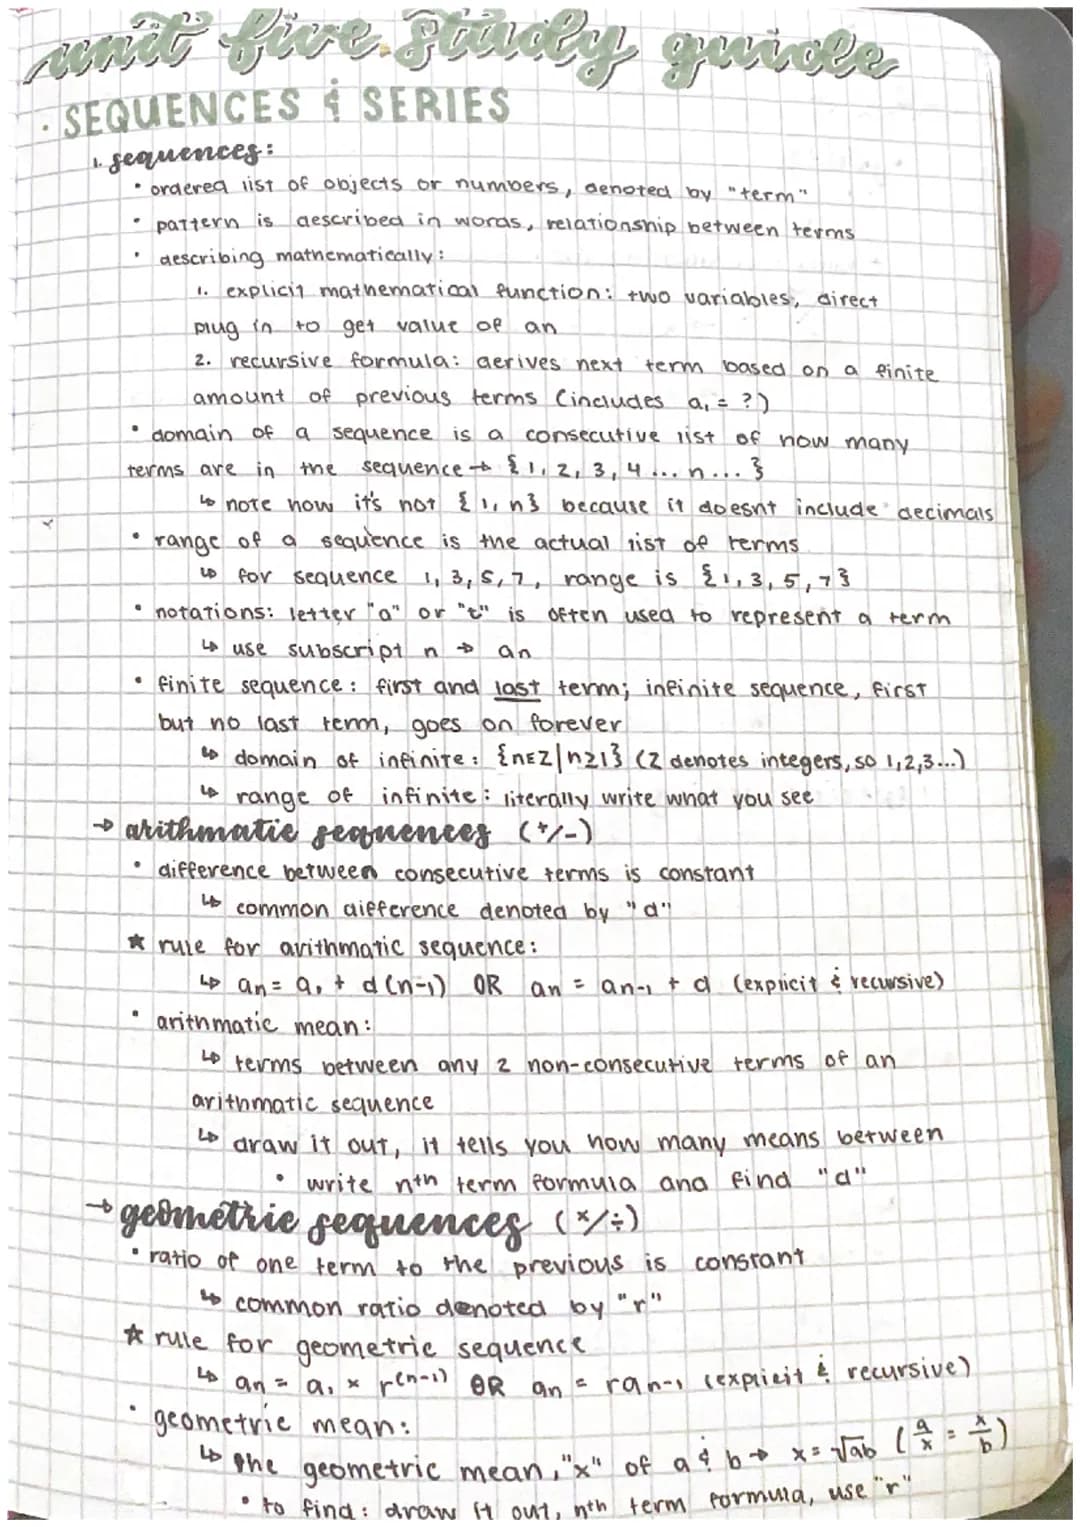 unit five study guide
· SEQUENCES & SERIES
1. sequences:
• ordered list of objects or numbers, denoted by "term"
• pattern is described in words, relationship between terms
• describing mathematically:
1. explicit mathematical function: two variables, direct
plug in to get value of an
2. recursive formula: derives next term based on a finite
amount of previous terms (includes a₁ = ?)
• domain of a sequence is a consecutive list of how many
terms are in the sequence → {1, 2, 3, 4 ... n ... }
↳ note how it's not {1, n} because it doesnt include decimals
• range of a sequence is the actual list of terms
↳ for sequence 1, 3, 5, 7, range is {1, 3, 5, 7}
• notations: letter "a" or "t" is often used to represent a term
↳ use subscript n → an
• finite sequence: first and last term; infinite sequence, first
but no last term, goes on forever
↳ domain of infinite: {n∈Z|n≥1} (Z denotes integers, so 1,2,3...)
↳ range of infinite: literally write what you see
→ arithmatic sequences (+/-)
• difference between consecutive terms is constant
↳ common difference denoted by "d"
★ rule for arithmatic sequence:
↳ an = a₁ + d(n-1) OR an = an-1 + d (explicit & recursive)
• arithmatic mean:
↳ terms between any 2 non-consecutive terms of an
arithmatic sequence
↳ draw it out, it tells you how many means between
• write nth term formula and find "d"
→ geometric sequences (×/÷)
• ratio of one term to the previous is constant
↳ common ratio denoted by "r"
★ rule for geometric sequence
↳ an = a₁ × r(n-1) OR an = ran-1 (explicit & recursive)
• geometric mean:
↳ the geometric mean, "x" of a & b → x = √ab (a/x = x/b)
• to find: draw it out, nth term formula, use "r"